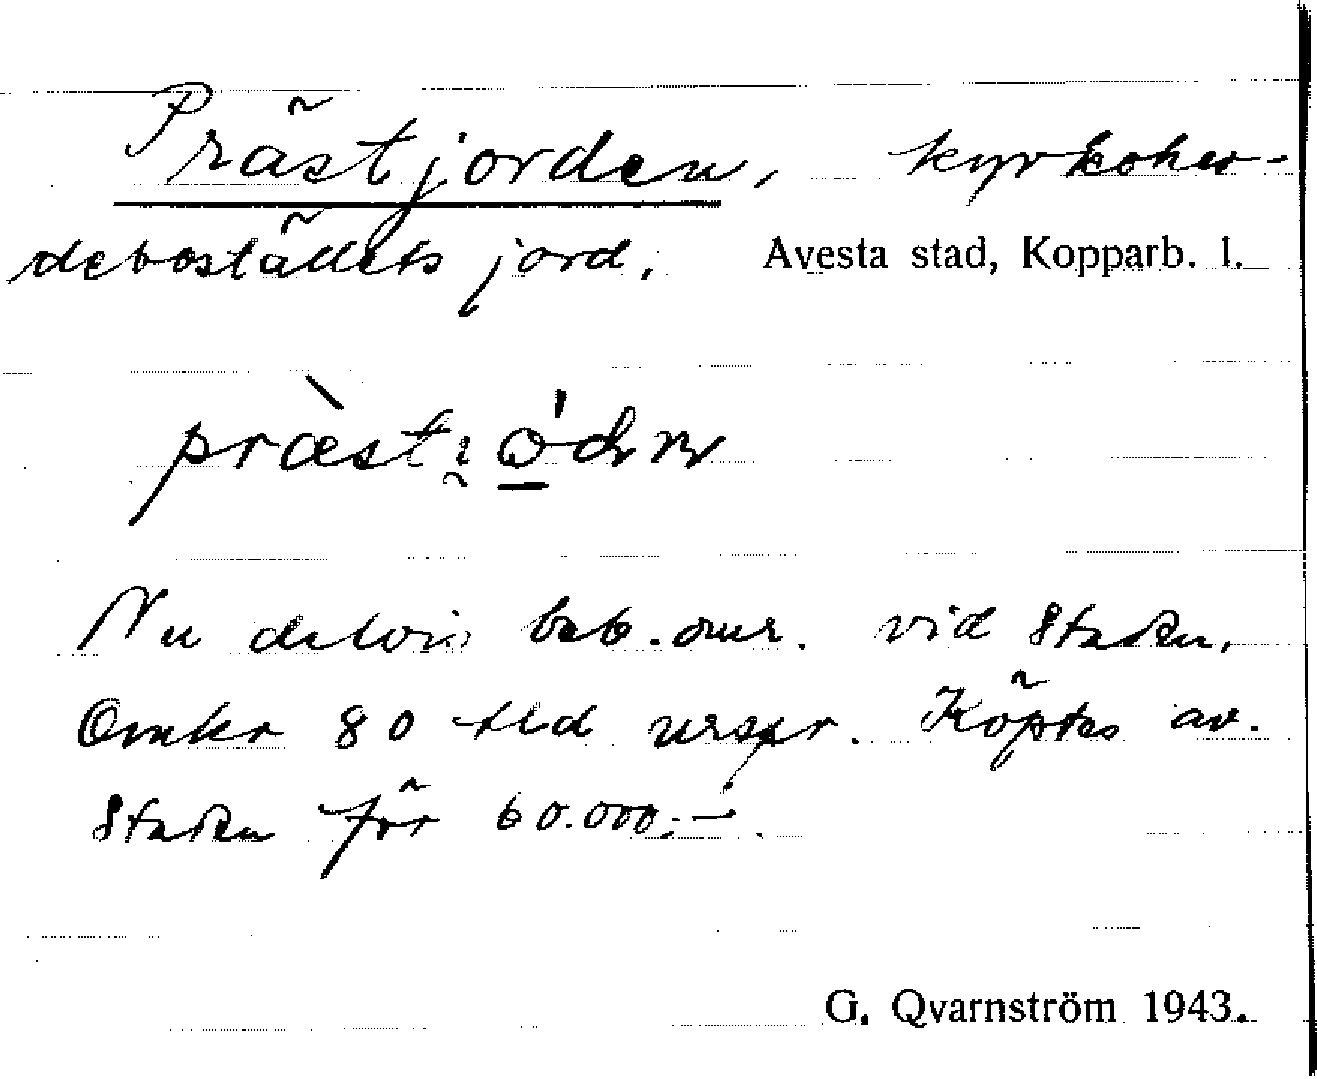 Prästjorden, kyrkoher-
debostädets jord. Avesta stad, Kopparb. l.
Nu delvis beb. omr. vid Staden.
Omkr 80 tld urspr. Köptes av.
Staden för 60.000:-.
G. Qvarnström 1943.